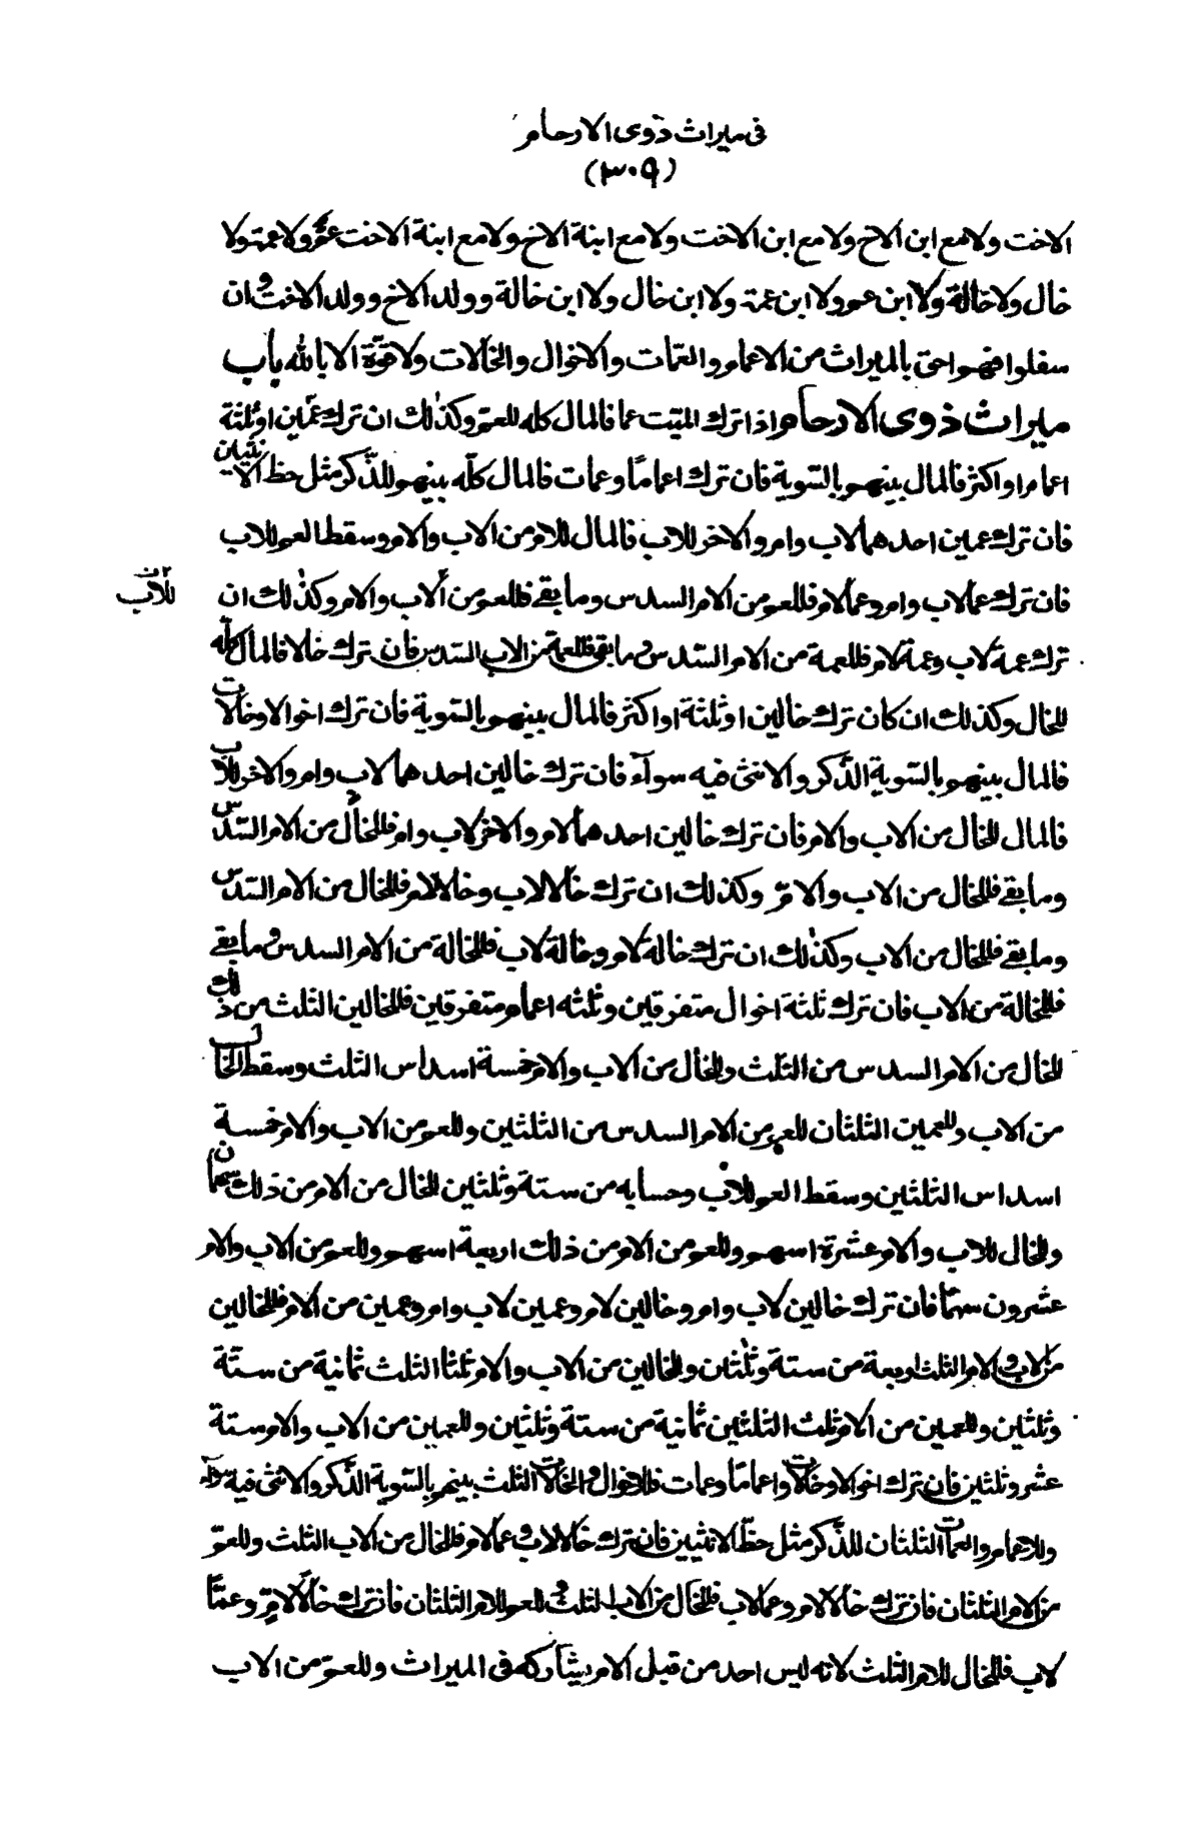 فى ميراث ذوى الارحام
(٣٠٩)
الاخت ولا مع ابن الاخ ولا مع ابن الاخت ولا مع ابنة الاخ ولا مع ابنة الاخت عم ولا عمة ولا
خال ولا خالة ولا ابن عم ولا ابن عمة ولا ابن خال ولا ابن خالة وولد الاخ وولد الاخت و ان
سفلوا فهم احق بالميراث من الاعمام والعمات والاخوال والخالات ولا قوة الا بالله باب
ميراث ذوى الارحام اذا ترك الميت عما فالمال كله للعم وكذلك ان ترك عمين او ثلثة
اعمام او اكثر فالمال بينهم بالسوية فان ترك اعمامًا وعمات فالمال كلّه بينهم للذّكر مثل حظ الانثيان
فان ترك عمين احدهما لاب وام والاخر للاب فالمال للام من الاب والام وسقط العم للاب
فان ترك عما لاب وام وعما لام فللعم من الام السدس وما بقى فللعم من الاب والام وكذلك ان
للاب
ترك عمة لاب وعمة لام فللعمة من الام السّدس وما بقى فللعمة من الاب السّدس فان ترك خالا فالمال كلّه
للخال وكذلك ان كان ترك خالين او ثلثة او اكثر فالمال بينهم بالسّوية فان ترك اخوالا وخالات
فالمال بينهم بالسّوية الذّكر والانثى فيه سوآء فان ترك خالين احدهما لاب وام والاخر للاب
فالمال للخال من الاب والام فان ترك خالين احدهما لام والاخر لاب وام فللخال من الام السّدس
وما بقى فللخال من الاب والامّ وكذلك ان ترك خالا لاب وخالا لام فللخال من الام السّدس
وما بقى فللخال من الاب وكذلك ان ترك خالة لام وخالة لاب فللخالة من الام السدس وما بقى
فللخالة من الاب فان ترك ثلثة اخوال متفرقين وثلثه اعمام متفرقين فللخالين الثلث من ذلك
للخال من الام السدس من الثلث وللخال من الاب والام خمسة اسداس الثلث وسقط الخال
من الاب وللعمين الثلثان للعم من الام السدس من الثلثين وللعم من الاب والام خمسة
اسداس الثلثين وسقط العم للاب وحسابه من ستة وثلثين للخال من الام من ذلك سهمان
وللخال للاب والام عشرة اسهم وللعم من الام من ذلك اربعة اسهم وللعم من الاب والام
عشرون سهمًا فان ترك خالين لاب وام وخالين لام وعمين لاب وام وعمين من الام فللخالين
من الاب و الام الثلث اربعة من ستة وثلثين وللخالين من الاب والام ثلثا الثلث ثمانية من ستّة
وثلثين وللعمين من الام ثلث الثلثين ثمانية من ستة وثلثين وللعمين من الاب والام ستة
عشر وثلثين فان ترك اخوالا وخالات واعمامًا وعمات فللاخوال و الخالات الثلث بينهم بالسّوية الذّكر والانثى فيه سوآء
وللاعمام والعمات الثلثان للذّكر مثل حظّ الانثيين فان ترك خالا لاب و عما لام فللخال من الاب الثلث وللعمّ
من الام الثلثان فان ترك خالا لام وعما لاب فللخال من الاب الثلث و للعم للام الثلثان فان ترك خالًا لامّ وعمًّا
لاب فللخال للام الثلث لانه ليس احد من قبل الام يشاركه فى الميراث وللعمّ من الاب